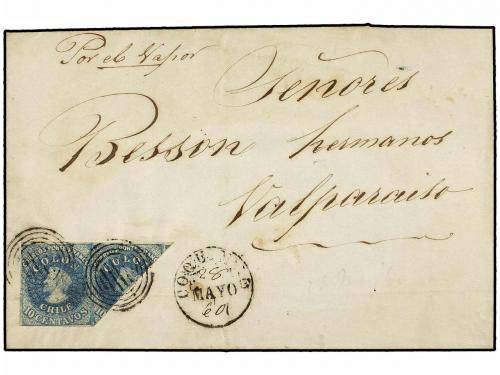 Por el Vapor
Señores
Besson hermanos
Valparaiso
COLON
CHILE
10 CENTAVOS
COLON
COQUIMBO
28
MAYO
60